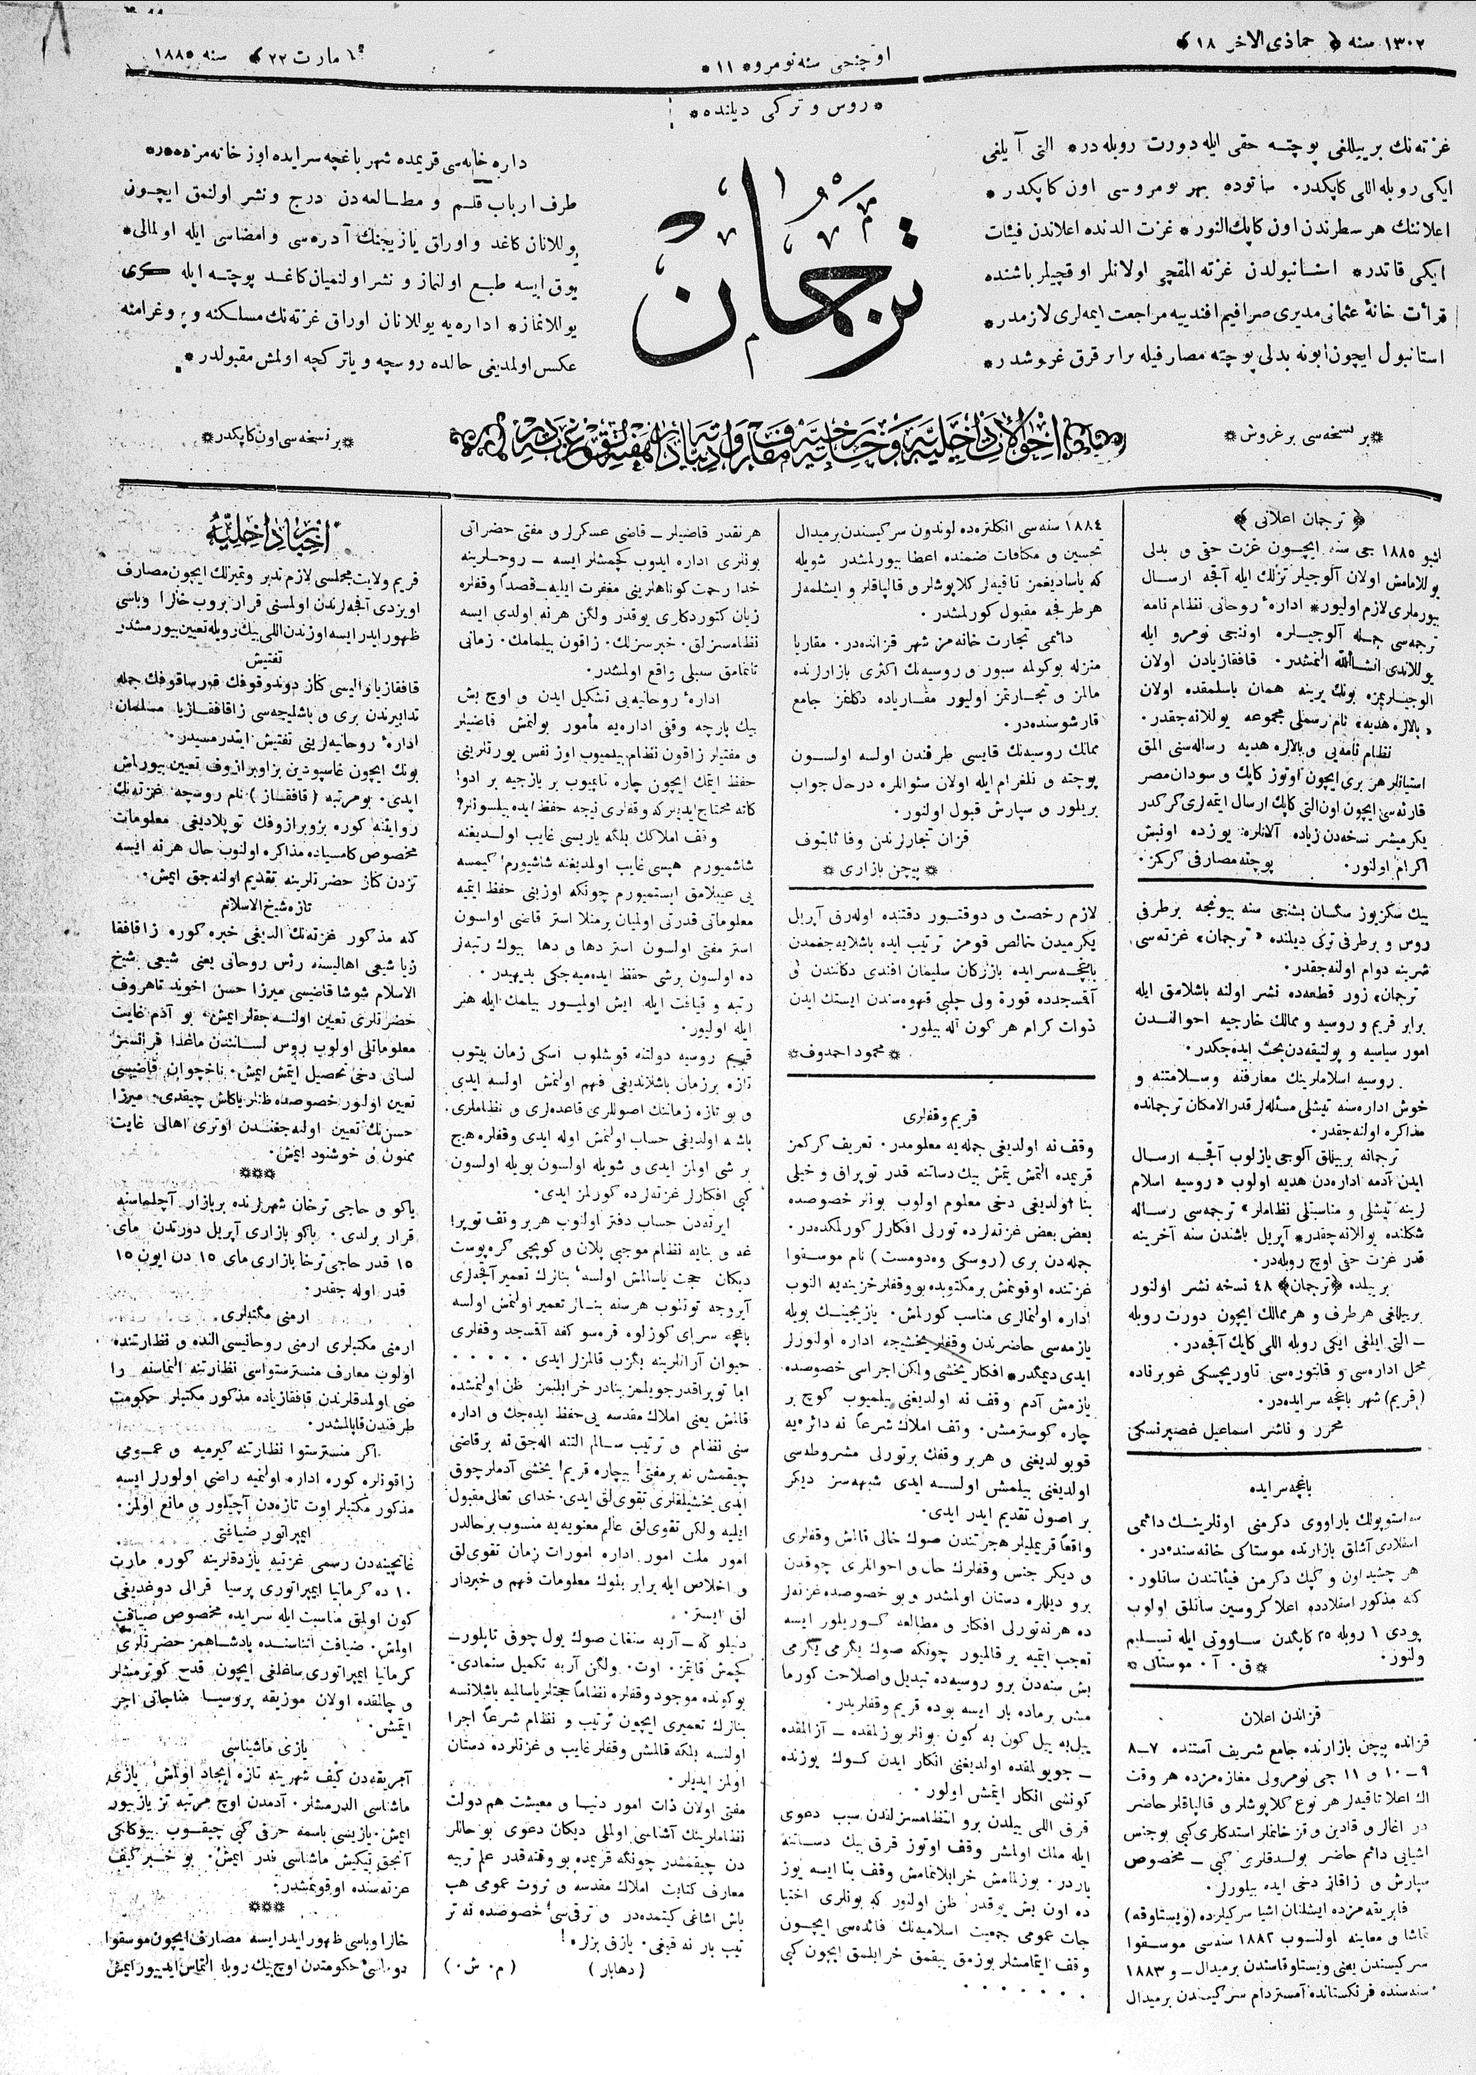 ١٣٠٢ سنه ﴿ جماذی الاخر ١٨ ﴾
اوچنجی سنه نومرو * ١١ *
مارت ٢٢ ﴾ سنه ١٨٨٥
* روس و تركی دیلنده *
غزته‌نك بر ییللغی پوچته حقی ایله دورت روبله‌در * التی آیلغی
ایكی روبله اللی كاپكدر. صاتوده بهر نومروسی اون كاپكدر *
اعلاننك هر سطرندن اون كاپك النور * غزت الدنده اعلاندن فیئات
ایكی قاتدر * استانبولدن غزته المقچی اولانلر اوقچیلر باشنده
قرأت خانهٔ عثمانی مدیری صرافیم افندییه مراجعت ایمه‌لری لازمدر *
استانبول ایچون ابونه بدلی پوچته مصارفیله برابر قرق غروشدر *
* بر نسخه‌سی بر غروش *
ترجمان
اداره خانه‌سی قریمده شهر باغچه سرایده اوز خانه‌مزده‌در *
طرف ارباب قلم و مطالعه‌دن درج و نشر اولنمق ایچون
یوللانان كاغد و اوراق یازیجینك آدره‌سی و امضاسی ایله اولمالی *
یوق ایسه طبع اولنماز و نشر اولنمیان كاغد پوچته ایله كری
یوللانماز * اداره‌یه یوللانان اوراق غزته‌نك مسلكنه و پروغرامنه
عكس اولمدیغی حالده روسچه و یا تركچه اولمش مقبولدر *
* بر نسخه‌سی اون كاپكدر *
﴿ ترجمان اعلانی ﴾
اشبو ١٨٨٥ جی سنه ایچون غزت حقی و بدلی
یوللامامش اولان آلوجیلر تزلك ایله آقچه ارسال
بیورملری لازم اولیور * ادارهٔ روحانی نظام نامه
ترجمه‌سی جمله آلوجیلره اوننجی نومرو ایله
یوللاندی انشاالله النمشدر. قافقازیادن اولان
الوجیلریمزه بونك یرینه همان باسلمقده اولان
« بالالره هدیه » نام رسملی مجموعه یوللانه‌جقدر.
نظام نامه‌یی و بالالره هدیه رساله‌سنی المق
استیانلر هر بری ایچون اوتوز كاپك و سودان مصر
قارته‌سی ایچون اون التی كاپك ارسال ایتمه‌لری كركدر
یكرمیشر نسخه‌دن زیاده آلانلره یوزده اونبش
اكرام اولنور. پوچته مصارفی كركمز.
بیك سكزیوز سكسان بشنجی سنه بیونجه بر طرفی
روس و بر طرفی تركی دیلنده « ترجمان » غزته‌سی
نشرینه دوام اولنه‌جقدر.
ترجمان، زور قطعه‌ده نشر اولنه باشلامق ایله
برابر قریم و روسیه و ممالك خارجیه احوالندن
امور سیاسیه و پولتیقه‌دن بحث ایده‌جكدر.
روسیه اسلاملرینك معارفنه وسلامتنه و
خوش اداره‌سنه تیشلی مسئله‌لر قدر الامكان ترجمانده
مذاكره اولنه‌جقدر.
ترجمانه بر ییللق آلوجی یازلوب آقچه ارسال
ایدن آدمه اداره‌دن هدیه اولوب « روسیه اسلام
لرینه تیشلی و مناسبتلی نظاملر » ترجمه‌سی رساله
شكلنده یوللانه‌جقدر * آپریل باشندن سنه آخرینه
قدر غزت حقی اوچ روبله‌در.
بر ییلده ﴿ترجمان﴾ ٤٨ نسخه نشر اولنور
بر ییللغی هر طرف و هر ممالك ایچون دورت روبله
– التی ایلغی ایكی روبله اللی كاپك آقچه‌در.
محل اداره‌سی و قانتوره‌سی تاوریچسكی غوبرناده
(قریم) شهر باغچه سرایده‌در.
محرر و ناشر اسماعیل غصپرنسكی
باغچه سرایده
سه‌استوپولك یاراووی دكرمنی اونلرینك دائمی
اسقلادی آشلق بازارنده موستاكی خانه‌سنده‌در.
هر چشید اون و كپك دكرمن فیئاتندن ساتلور.
كه مذكور اسقلادده اعلا كروسین ساتلق اولوب
پودی ١ روبله ٢٥ كاپكدن ساووتی ایله تسلیم
اولنور. * ق. آ. موستاكی *
قزاندن اعلان
قزانده پیچن بازارنده جامع شریف آستنده ٧–٨
٩–١٠ و ١١ جی نومرولی مغازه‌مزده هر وقت
اك اعلا تاقیه‌لر هر نوع كلاپوشلر و قالپاقلر حاضر
در اغالر و قادین و قز خانملر استدكلری كبی بو جنس
اشیایی دائم حاضر بولدقلری كبی – مخصوص
سپارش و زاقاز دخی ایده بیلورلر.
فابریقه‌مزده ایشلنان اشیا سرگیلرده (ویستاوقه)
تماشا و معاینه اولنوب ١٨٨٢ سنه‌سی موسقوا
سرگیسندن یعنی ویستاوقاسندن بر میدال – و ١٨٨٣
سنه‌سنده فرنكستانده آمستردام سرگیسندن بر میدال
١٨٨٤ سنه‌سی انكلتره‌ده لوندون سرگیسندن بر میدال
تحسین و مكافات ضمنده اعطا بیورلمشدر شویله
كه یاسادیغمز تاقیه‌لر كلاپوشلر و قالپاقلر و ایشلمه‌لر
هر طرفجه مقبول كورلمشدر.
دائمی تجارت خانه‌مز شهر قزانده‌در. مقاریا
منزله بوكولمه سیبر و روسیه‌نك اكثری بازارلرنده
مالمز و تجارتمز اولیور مقاریاده دكانمز جامع
قارشوسنده‌در.
ممالك روسیه‌نك قایسی طرفندن اولسه اولسون
پوچته و تلغرام ایله اولان سئوالمره درحال جواب
بریلور و سپارش قبول اولنور.
قزان تجارلرندن وفا ثابتوف
* پیچن بازاری *
لازم رخصت و دوقتور دقتنده اوله‌رق آپریل
یكرمیدن خالص قومز ترتیب ایده باشلایه‌جغمدن
باغچه سرایده بازرگان سلیمان افندی دكانندن و
آقمسجدده قورة ولی چلبی قهوه‌سندن ایستك ایدن
ذوات كرام هر كون آله بیلور.
* محمود احمدوف *
قریم وقفلری
وقف نه اولدیغی جمله‌یه معلومدر. تعریف كركمز
قریمده التمش یتمش بیك دساتنه قدر توپراق و خیلی
بنا اولدیغی دخی معلوم اولوب بونلر خصوصده
بعض بعض غزته‌لرده تورلی افكارلر كورلمكده‌در.
جمله‌دن بری (روسكی وه‌دومست) نام موسقوا
غزتنده اوقونمش بر مكتوبده بو وقفلر خزینه‌یه النوب
اداره اولنمالری مناسب كورلمش. یازیجینك بویله
یازمه‌سی حاضرندن وقفلر یخشیجه اداره اولنورلر
ایدی دیمكدر * افكار یخشی ولكن اجراسی خصوصده
یازمش آدم وقف نه اولدیغنی بیلمیوب كوچ بر
چاره كوسترمش. وقف املاك شرعاً نه دائره‌یه
قویولدیغنی و هر بر وقفك بر تورلی مشروطه‌سی
اولدیغنی بیلمش اولسه ایدی شبهه‌سز دیكر
بر اصول تقدیم ایدر ایدی.
واقعاً قریملیلر هجرتندن صوك خالی قالمش وقفلری
و دیكر جنس وقفلرك حال و احواللری چوقدن
برو دیللره دستان اولمشدر و بو خصوصده غزته‌لر
ده هر نه تورلی افكار و مطالعه كوریلور ایسه
تعجب ایتمیه یر قالمیور چونكه صوك یگرمی یگرمی
بش سنه‌دن برو روسیه‌ده تبدیل و اصلاحت كورما
مش برماده بار ایسه بوده قریم وقفلریدر.
ییل به ییل كون به كون بونلر بوزلمقده – آزالمقده
– جویولمقده اولدیغنی انكار ایدن كوك یوزنده
كونشی انكار ایتمش اولور.
قرق اللی ییلدن برو انتظامسزلقدن سبب دعوی
ایله ملك اولمش وقف اوتوز قرق بیك دساتنه
باردر. بوزلمامش خرابلانمامش وقف بنا ایسه یوز
ده اون بش یوقدر ظن اولنور كه بونلری اختیا
جات عمومی جمعیت اسلامیه‌نك فائده‌سی ایچون
وقف ایتمامشلر بوزمق ییقمق خرابلمق ایچون كبی
. . . . . . .
هر نقدر قاضیلر – قاضی عسكرلر و مفتی حضراتی
بونلری اداره ایدوب كچمشلر ایسه – روحلرینه
خدا رحمت كوناهلرینی مغفرت ایلیه – قصداً وقفلره
زیان كتوردكلری یوقدر ولكن هر نه اولدی ایسه
نظام‌سزلق. خبرسزلك. زاقون بیلمامك. زمانی
تانمامق سبلی واقع اولمشدر.
ادارهٔ روحانیه‌یی تشكیل ایدن و اوچ بش
بیك پارچه وقفی اداره‌یه مأمور بولنمش قاضیلر
و مفتیلر زاقون نظام بیلمیوب اوز نفس یورتلرینی
حفظ ایتمك ایچون چاره تاپمیوب بر یازجیه بر ادوا
كاته محتاج ایدیلر كه وقفلری نیجه حفظ ایده بیلسونلر؟
وقف املاكك بلكه یاریسی غایب اولدیغنه
شاشمیورم هپسی غایب اولمدیغنه شاشیورم! كیمسه
یی عیبلامق ایستمیورم چونكه اوزینی حفظ ایتمیه
معلوماتی قدرتی اولمیان بر منلا استر قاضی اولسون
استر مفتی اولسون استر دها و دها بیوك رتبه‌لر
ده اولسون بر شی حفظ ایده‌میه‌جكی بدیهیدر.
رتبه و قیافت ایله. ایش اولمیور بیلمك ایله هنر
ایله اولیور.
قریم روسیه دولتنه قوشیلوب اسكی زمان بیتوب
تازه بر زمان باشلاندیغی فهم اولنمش اولسه ایدی
و بو تازه زماننك اصوللری قاعده‌لری و نظاملری.
باشه اولدیغی حساب اولنمش اوله ایدی وقفلره هیچ
بر شی اولمز ایدی و شویله اولسون بویله اولسون
كبی افكارلر غزته‌لرده كورلمز ایدی.
ایرته‌دن حساب دفتر اولنوب هر بر وقف توپرا
غه و بنایه نظام موجبی پلان و كوپچی كره‌پوست
دیكان حجت یاسالمش اولسه، بنانك تعمیر آقچه‌لری
آیروجه توتنوب هر سنه بنالر تعمیر اولنمش اولسه
باغچه سرای كوزلوه قره‌سو كفه آقمسجد وقفلری
حیوان آرانلرینه بكزب قالمزلر ایدی . . . . .
اما توپراقدر جویلمز بنادر خرابلنمز ظن اولنمشده
قالمش یعنی املاك مقدسه یی حفظ ایده‌جك و اداره
سنی نظام و ترتیب سالم التنه اله‌جق نه بر قاضی
چیقمش نه بر مفتی! بیچاره قریم! یخشی آدملر چوق
ایدی یخشیلقلری تقوی‌لق ایدی. خدای تعالی مقبول
ایلیه ولكن تقوی‌لق عالم معنویه‌یه منسوب بر حالدر
امور ملت امور اداره امورات زمان تقوی‌لق
و اخلاص ایله برابر بلمك معلومات فهم و خبردار
لق ایستر.
دنیلور كه – آربه سنغان صوك یول چوق تاپلور –
كچمش قایتمز. اوت. ولكن آربه تكمیل سنمادی.
بوكونده موجود وقفلره نظاماً حجتلر یاسالمیه باشلانسه
بنانك تعمیری ایچون ترتیب و نظام شرعاً اجرا
اولنسه بلكه قالمش وقفلر غایب و غزتلرده دستان
اولمز ایدیلر.
مفتی اولان ذات امور دنیا و معیشت هم دولت
نظاملرینك آشناسی اولملی دیكان دعوی بو حاللر
دن چیقمشدر چونكه قریمده بو وقته‌قدر علم تربیه
معارف كتابت املاك مقدسه و ثروت عمومی هپ
باش اشاغی كیتمده‌در و ترقی‌سی خصوصده نه تر
تیب بار نه قیغی. یازق بزلره!
(دهابار) (م. ش.)
اخبار داخلیه
قریم ولایت مجلسی لازم تدبیر و تمیزلك ایچون مصارف
اویزدی آقچه‌لرندن اولمسنی قرار یروب خالرا وباسی
ظهور ایدر ایسه اوزندن اللی بیك روبله تعیین بیورمشدر
تفتیش
قافقازیا والیسی كناز دوندوقوف قورساقوفك جمله
تدابیرندن بری و باشلیجه‌سی زاقافقازیا مسلمان
ادارهٔ روحانیه‌لرینی تفتیش ایتدرمسیدر.
بونك ایچون غاسپودین بزاوبرازوف تعیین بیورلمش
ایدی. بو مرتبه (قافقاز) نام روسچه غزته‌نك
روایتنه كوره بزوبرازوفك توپلادیغی معلومات
مخصوص كامسیاده مذاكره اولنوب حال هر نه ایسه
تزدن كناز حضرتلرینه تقدیم اولنه‌جق ایمش.
تازه شیخ الاسلام
كنه مذكور غزته‌نك الدیغی خبره كوره زاقافقا
زیا شیعی اهالیسنه رئس روحانی یعنی شیعی شیخ
الاسلام شوشا قاضیسی میرزا حسن اخوند تاهروف
حضرتلری تعیین اولنه‌جقلر ایمش. بو آدم غایت
معلوماتلی اولوب روس لسانندن ماعدا فرانسز
لسانی دخی تحصیل ایتمش ایمش. ناخچوان قاضیسی
تعیین اولنور خصوصده ظنلر یاكلش چیقدی. میرزا
حسن‌نك تعیین اوله‌جغندن اوتری اهالی غایت
ممنون و خوشنود ایمش.
***
باكو و حاجی ترخان شهرلرنده بر بازار آچلماسنه
قرار برلدی. باكو بازاری آپریل دورتدن مای
١٥ قدر حاجی ترخا بازاری مای ١٥ دن ایون ١٥
قدر اوله جقدر.
ارمنی مكتبلری
ارمنی مكتبلری ارمنی روحانیسی الننده و نظارتنده
اولوب معارف منسترستواسی نظارتنه التماسنه را
ضی اولمدقلرندن قافقازیاده مذكور مكتبلر حكومت
طرفندن قاپالمشدر.
اكر منسترستوا نظارتنه كیرمیه و عمومی
زاقونلره كوره اداره اولنمیه راضی اولورلر ایسه
مذكور مكتبلر اوت تازه‌دن آچیلور و مانع اولمز.
ایمپراتور ضیافتی
غاتچینه‌دن رسمی غزتیه یازدقلرینه كوره مارت
١٠ ده كرمانیا ایمپراتوری پرسیا قرالی دوغدیغی
كون اولمق مناسبت ایله سرایده مخصوص ضیافت
اولمش. ضیافت اثناسنده پادشاهمز حضرتلری
كرمانیا ایمپراتوری ساغلغی ایچون قدح كوترمشلر
و چالمقده اولان موزیقه پروسیا مناجاتی اجر
ایتمش.
یازی ماشیناسی
آمریقه‌دن كیف شهرینه تازه ایجاد اولمش یازی
ماشناسی الدرمشلر. آدمدن اوچ مرتبه تز یازیور
ایمش. یازیسی باسمه حرفی كبی چیقوب بیوكلكی
آنجق تیكیش ماشناسی قدر ایمش. بو خبر كیف
غزته‌سنده اوقونمشدر.
***
خالرا وباسی ظهور ایدر ایسه مصارف ایچون موسقوا
دوماسی حكومتدن اوچ بیك روبله التماس ایدیور ایمش